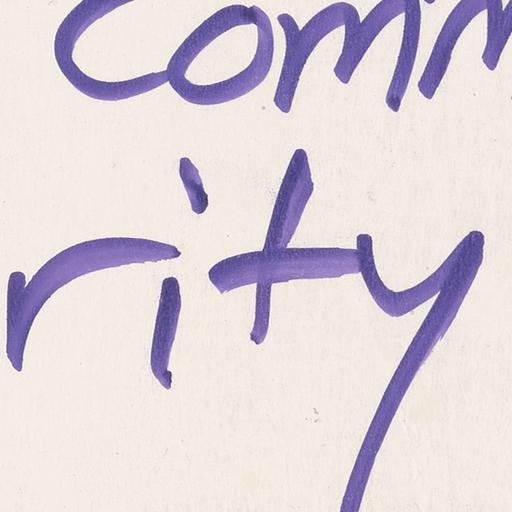 comm
rity